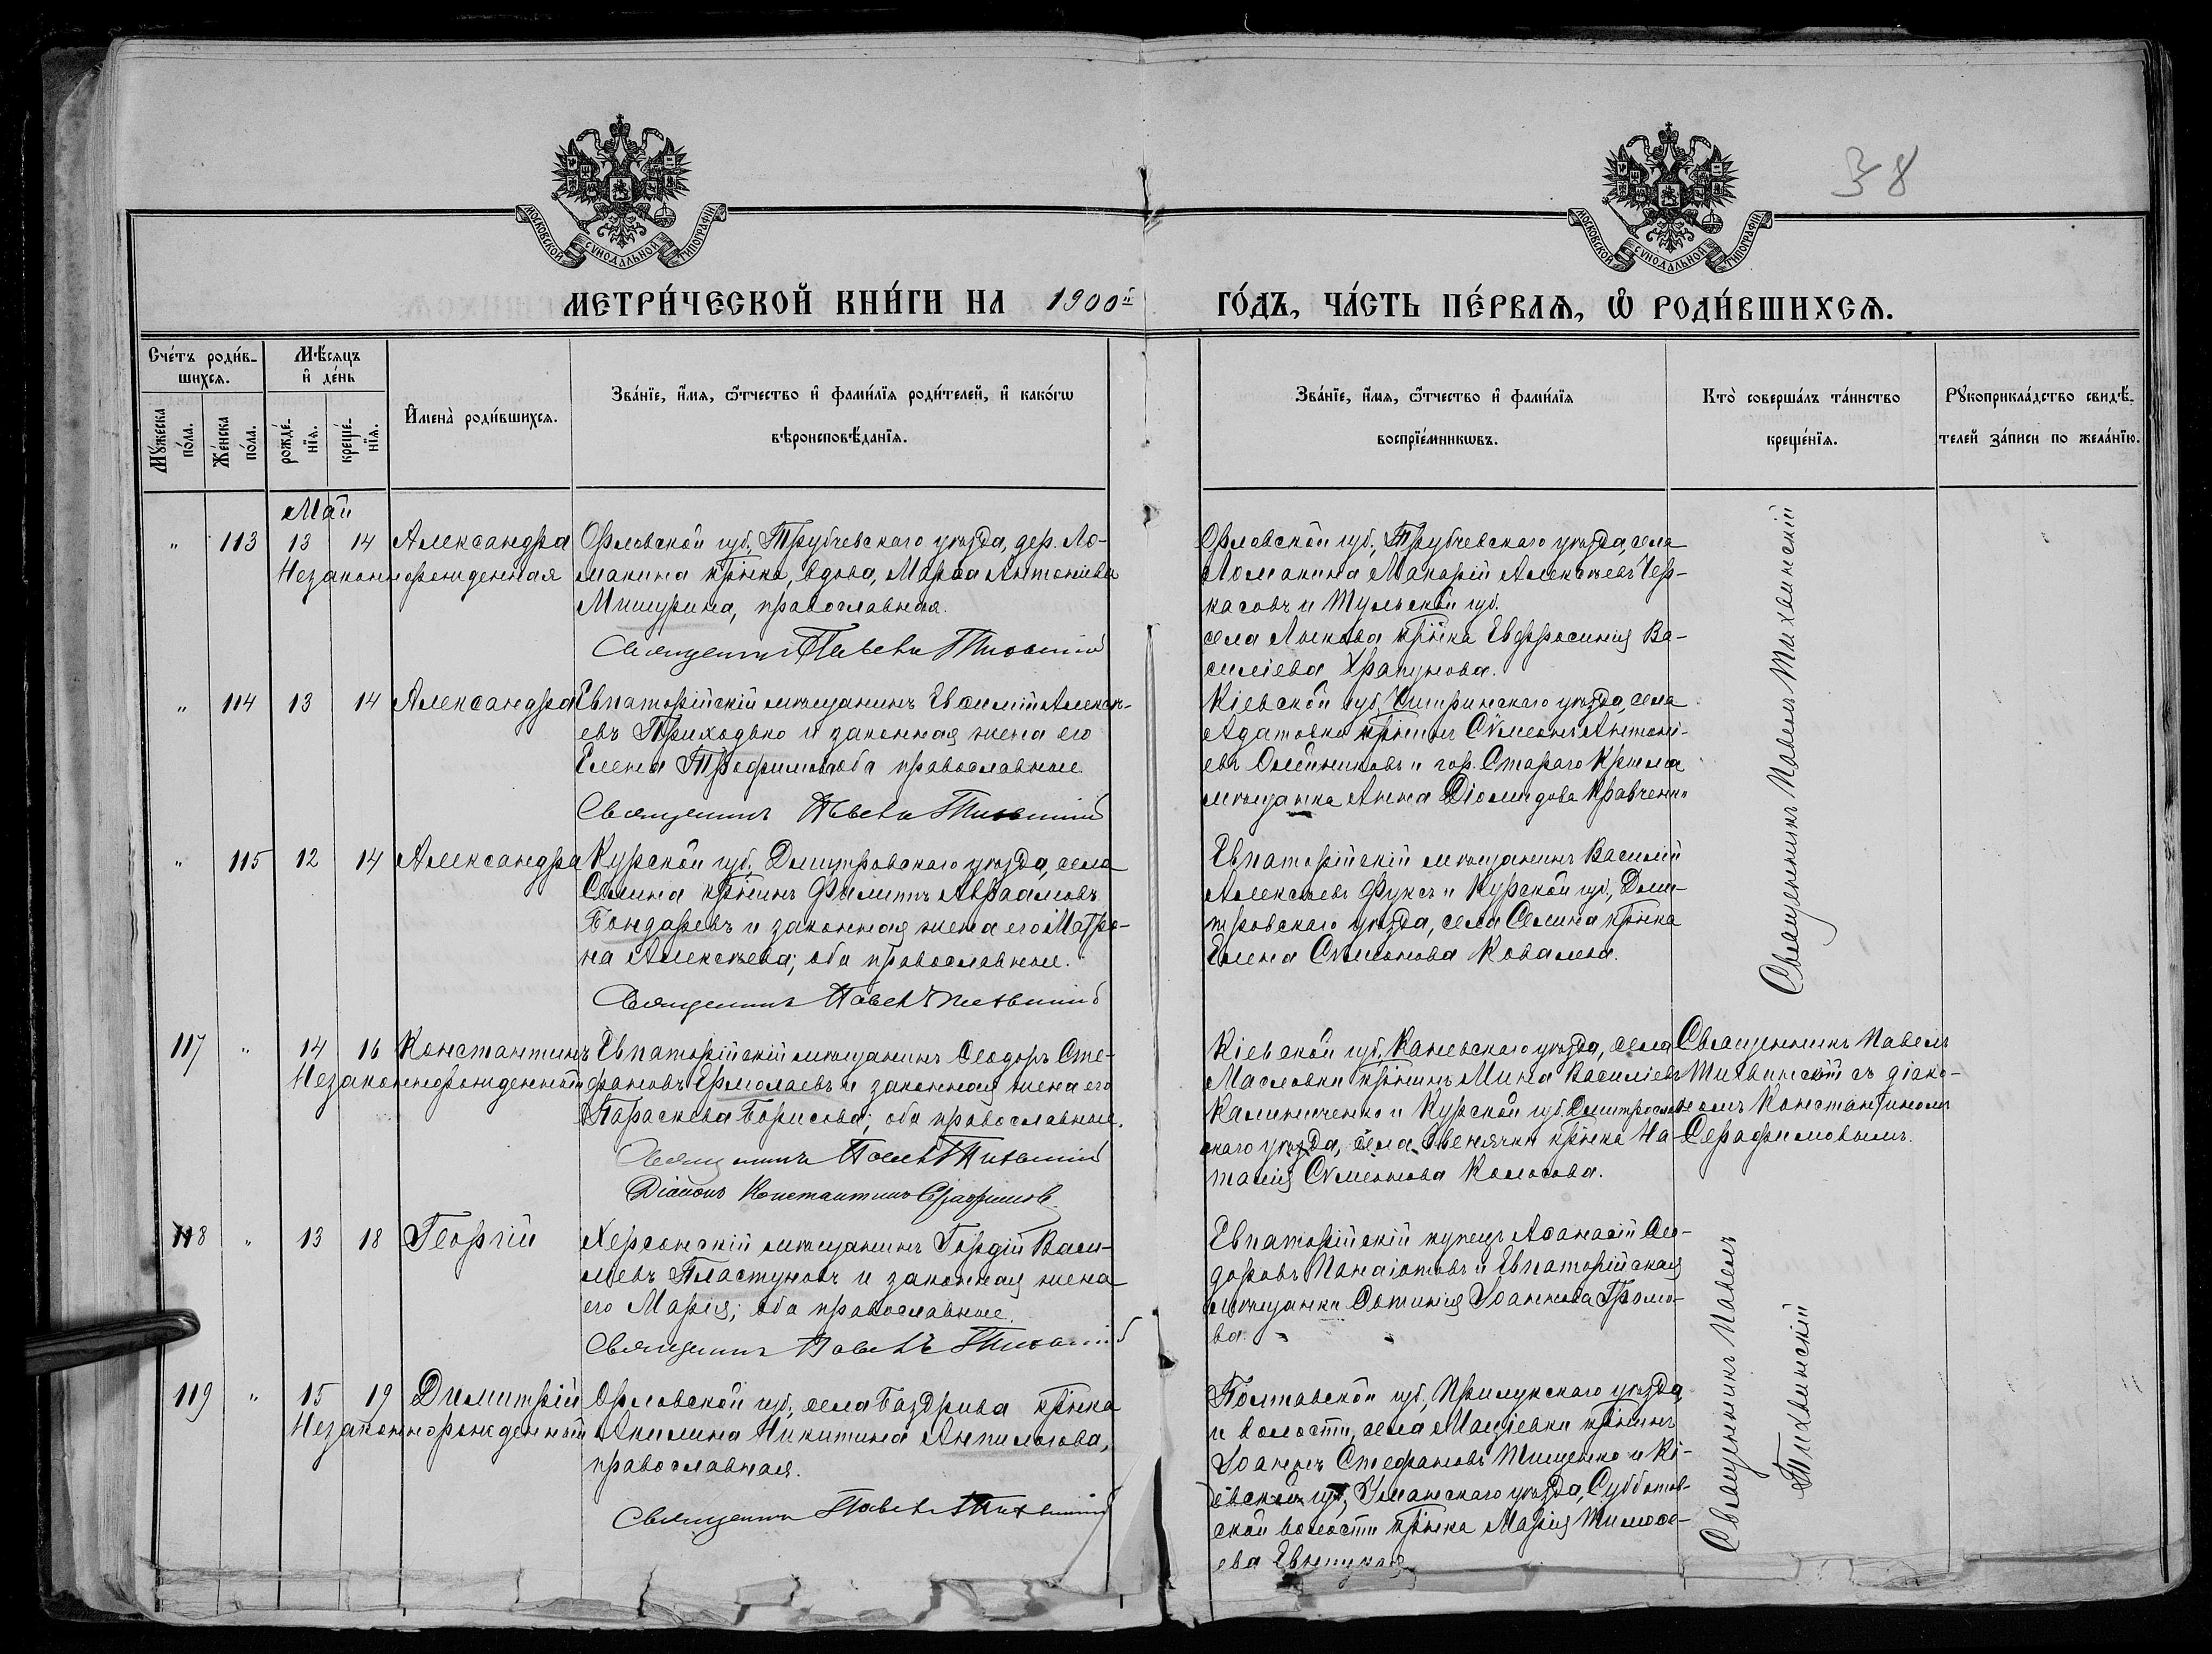 38
МОСКОВСКОЙ СѴНОДАЛЬНОЙ ТИПОГРАФІИ
МОСКОВСКОЙ СѴНОДАЛЬНОЙ ТИПОГРАФІИ
МЕТРИ́ЧЕСКОЙ КНИ́ГИ НА 1900й ГО́ДЪ, ЧА́СТЬ ПЕ́РВАѦ, Ѽ РОДИ́ВШИХСѦ.
Сче́тъ роди́в-
шихсѧ.
Мꙋ́жеска по́ла.
Же́нска по́ла.
Мѣ́сѧцъ
и҆ де́нь
рожде́-
нїѧ.
креще́-
нїѧ.
И҆мена̀ роди́вшихсѧ.
Зва́нїе, и҆́мѧ, ѻ҆́тчество и҆ фами́лїѧ роди́телей, и҆ како́гѡ
вѣроисповѣ́данїѧ.
Зва́нїе, и҆́мѧ, ѻ҆́тчество и҆ фами́лїѧ
воспрїе́мникѡвъ.
Кто̀ соверша́лъ та́инство
креще́нїѧ.
Рꙋкоприкла́дство свидѣ́-
телей за́писи по жела́нїю.
Май
" 113 13 14 Александра
Незаконнорожденная
Орловской губ., Трубчевскаго уѣзда, дер. Ло-
макина кр̃нка, вдова, Марѳа Антоніева
Мишурина, православная.
Священникъ Павелъ Тихвинскій
Орловской губ., Трубчевскаго уѣзда, села
Ломакина Макарій Алексѣевъ Чер-
касовъ и Тульской губ.
села кр̃нка Евфросинія Ва-
силіева Храпунова.
Священникъ Павелъ Тихвинскій
" 114 13 14 Александра
Евпаторійскій мѣщанинъ Евѳимій Алексѣ-
евъ Приходько и законная жена его
Елена Трофимова оба православные
Священникъ Павелъ Тихвинскій
Кіевской губ., уѣзда, села
Адамовки кр̃нинъ Сѵмеонъ Антоні-
евъ Олейниковъ и гор. Стараго Крыма
мѣщанка Анна Діомидова Кравченко
" 115 12 14 Александра
Курской губ., Дмитровскаго уѣзда, села
Селина кр̃нинъ Филиппъ Авраамовъ
Бондаревъ и законная жена его Матро-
на Алексѣева; оба православные.
Священникъ Павелъ Тихвинскій
Евпаторійскій мѣщанинъ Василій
Алексѣевъ Фуксъ и Курской губ., Дми-
тровскаго уѣзда, села Селина кр̃нка
Елена Сѵмеонова Ковалева.
117 " 14 16 Константинъ
Незаконнорожденный
Евпаторійскій мѣщанинъ Ѳеодоръ Сте-
фановъ Ермолаевъ и законная жена его
Параскева Борисова; оба православные.
Священникъ Павелъ Тихвинскій
Діаконъ Константинъ Серафимовъ.
Кіевской губ., Каневскаго уѣзда, села
Масловки кр̃нинъ Мина Василіевъ
Калиниченко и Курской губ. Дмитров-
скаго уѣзда, села кр̃нка На-
талія Сѵмеонова Колосова.
Священникъ Павелъ
Тихвинскій съ діако-
номъ Константиномъ
Серафимовымъ.
118 " 13 18 Георгій
Херсонскій мѣщанинъ Гордій Васи-
ліевъ Пластуновъ и законная жена
его Марія; оба православные.
Священникъ Павелъ Тихвинскій
Евпаторійскій купецъ Аѳанасій Ѳео-
доровъ Панаіотовъ и Евпаторійская
мѣщанка Фотинія Іоаннова Громо-
ва.
Священникъ Павелъ
Тихвинскій
119 " 15 19 Димитрій
Незаконнорожденный
Орловской губ., села кр̃нка
Акилина Никитина Анпилогова,
православная.
Священникъ Павелъ Тихвинскій
Полтавской губ., Прилукскаго уѣзда
и волости, села Маціевки кр̃нинъ
Іоаннъ Стефановъ Тищенко и Кі-
евской губ., Уманскаго уѣзда, Субботов-
ской волости кр̃нка Марія Тимоѳе-
ева